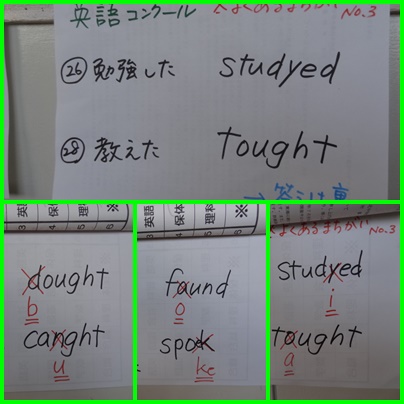 英語コンクール よくあるまちがい No.3
㉖ 勉強した studyed
㉘ 教えた tought
→ 答えは裏
英語
保体
理科
※
dought
b
canght
u
英語
保体
理科
※
faund
o
spok
ke
よくあるまちがい No.3
studyed
i
tought
a